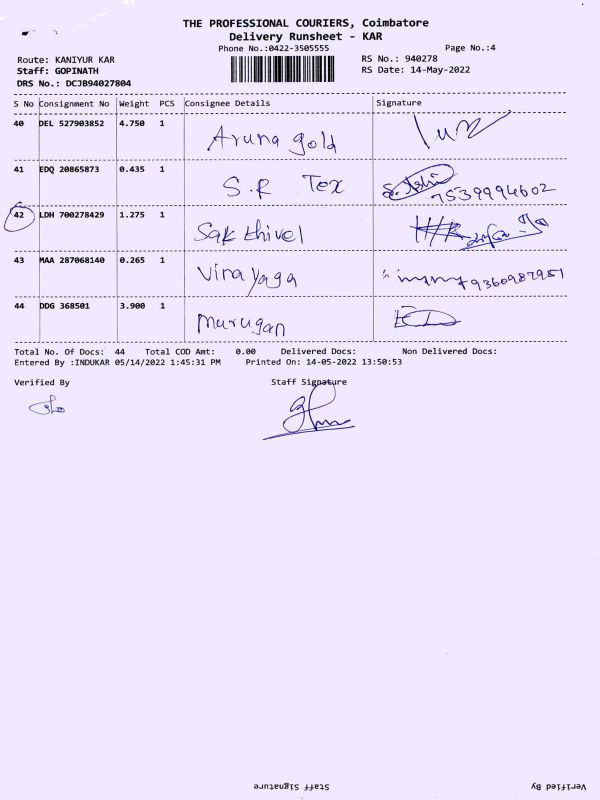 THE PROFESSIONAL COURIERS, Coimbatore
Delivery Runsheet - KAR
Phone No.:0422-3505555
Page No.:4
Route: KANIYUR KAR
RS No.: 940278
Staff: GOPINATH
RS Date: 14-May-2022
DRS No.: DCJB94027804
S No Consignment No Weight PCS Consignee Details Signature
40 DEL 527903852 4.750 1 Aruna gold
41 EDQ 20865873 0.435 1 S.R Tex 7539994602
42 LDH 700278429 1.275 1 Sakthivel
43 MAA 287068140 0.265 1 Vinayaga 9360987951
44 DDG 368501 3.900 1 Murugan
Total No. Of Docs: 44 Total COD Amt: 0.00 Delivered Docs: Non Delivered Docs:
Entered By :INDUKAR 05/14/2022 1:45:31 PM Printed On: 14-05-2022 13:50:53
Verified By Staff Signature
Staff Signature Verified By